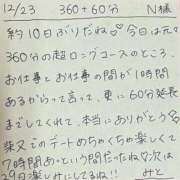 12/23 360+60分 N様
約10日ぶりだね♡今日は元々
360分の超ロングコースのところ、
お仕事とお仕事の間が1時間
あるからって言って、更に60分延長
までしてくれて、本当にありがとう
柴又でのデートめちゃくちゃ楽しくて
7時間あっという間だったね♡次は
29日楽しみにしてるね!! みと